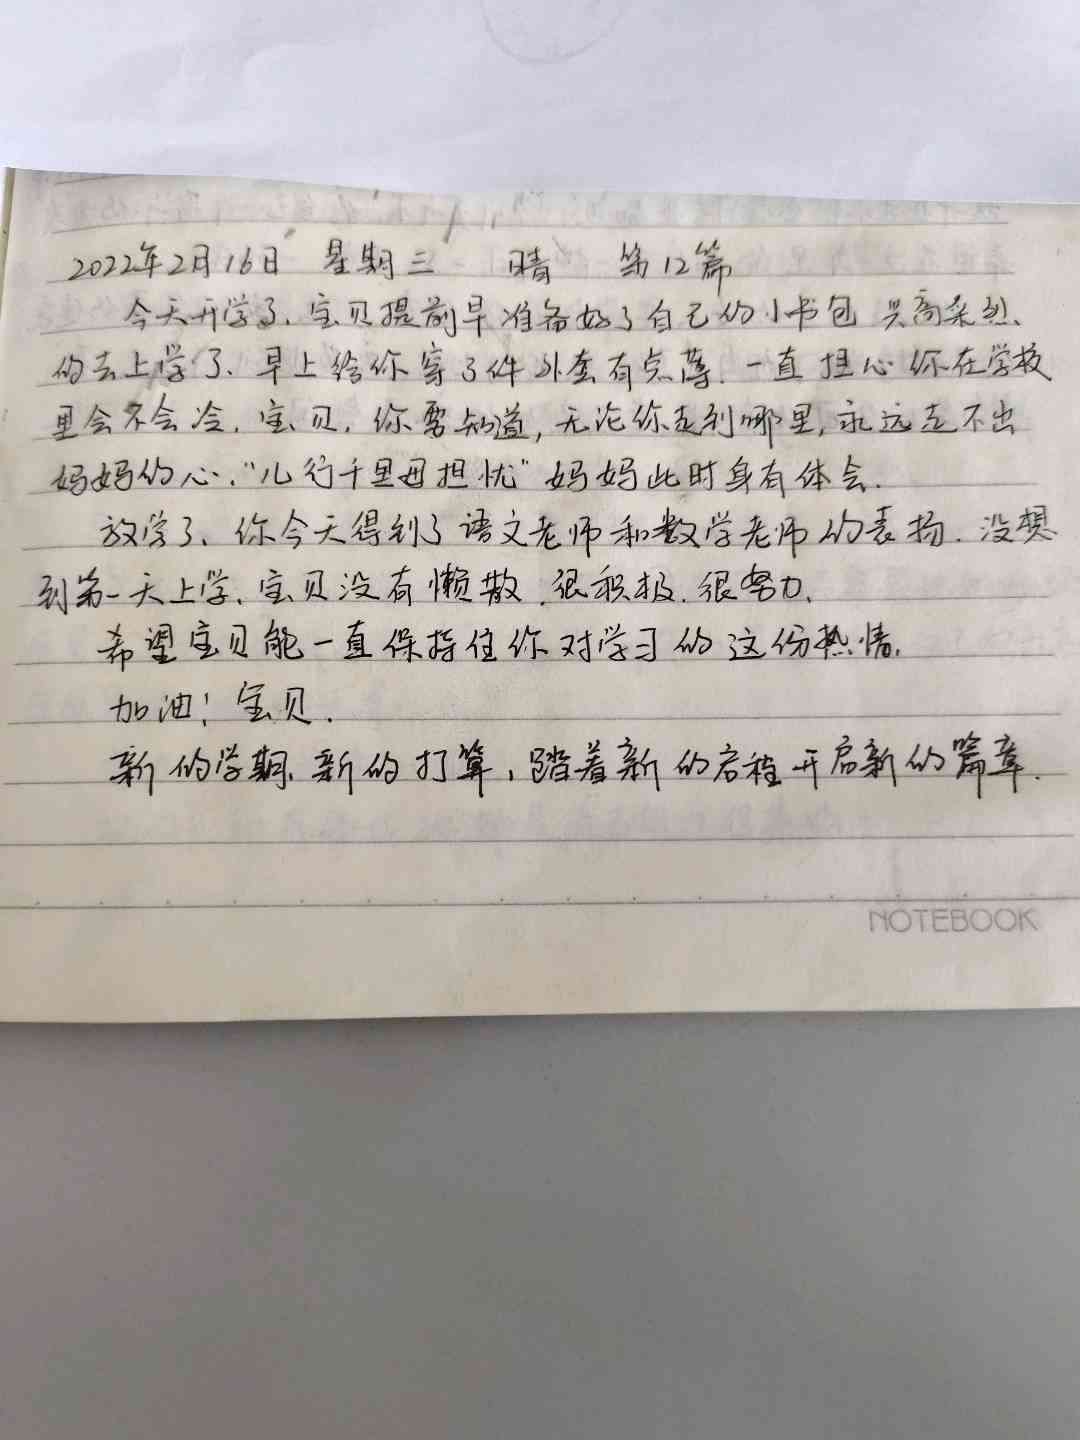 2022年2月16日 星期三 晴 第12篇
今天开学了、宝贝提前早准备好了自己的小书包 兴高采烈、
的去上学了、早上给你穿了件外套有点薄.一直担心你在学校
里会不会冷.宝贝,你要知道,无论你走到哪里,永远走不出
妈妈的心."儿行千里母担忧"妈妈此时身有体会.
放学了、你今天得到了语文老师和数学老师的表扬.没想
到第一天上学、宝贝没有懒散.很积极.很努力.
希望宝贝能一直保持住你对学习的这份热情.
加油!宝贝.
新的学期、新的打算,踏着新的启程开启新的篇章.
NOTEBOOK